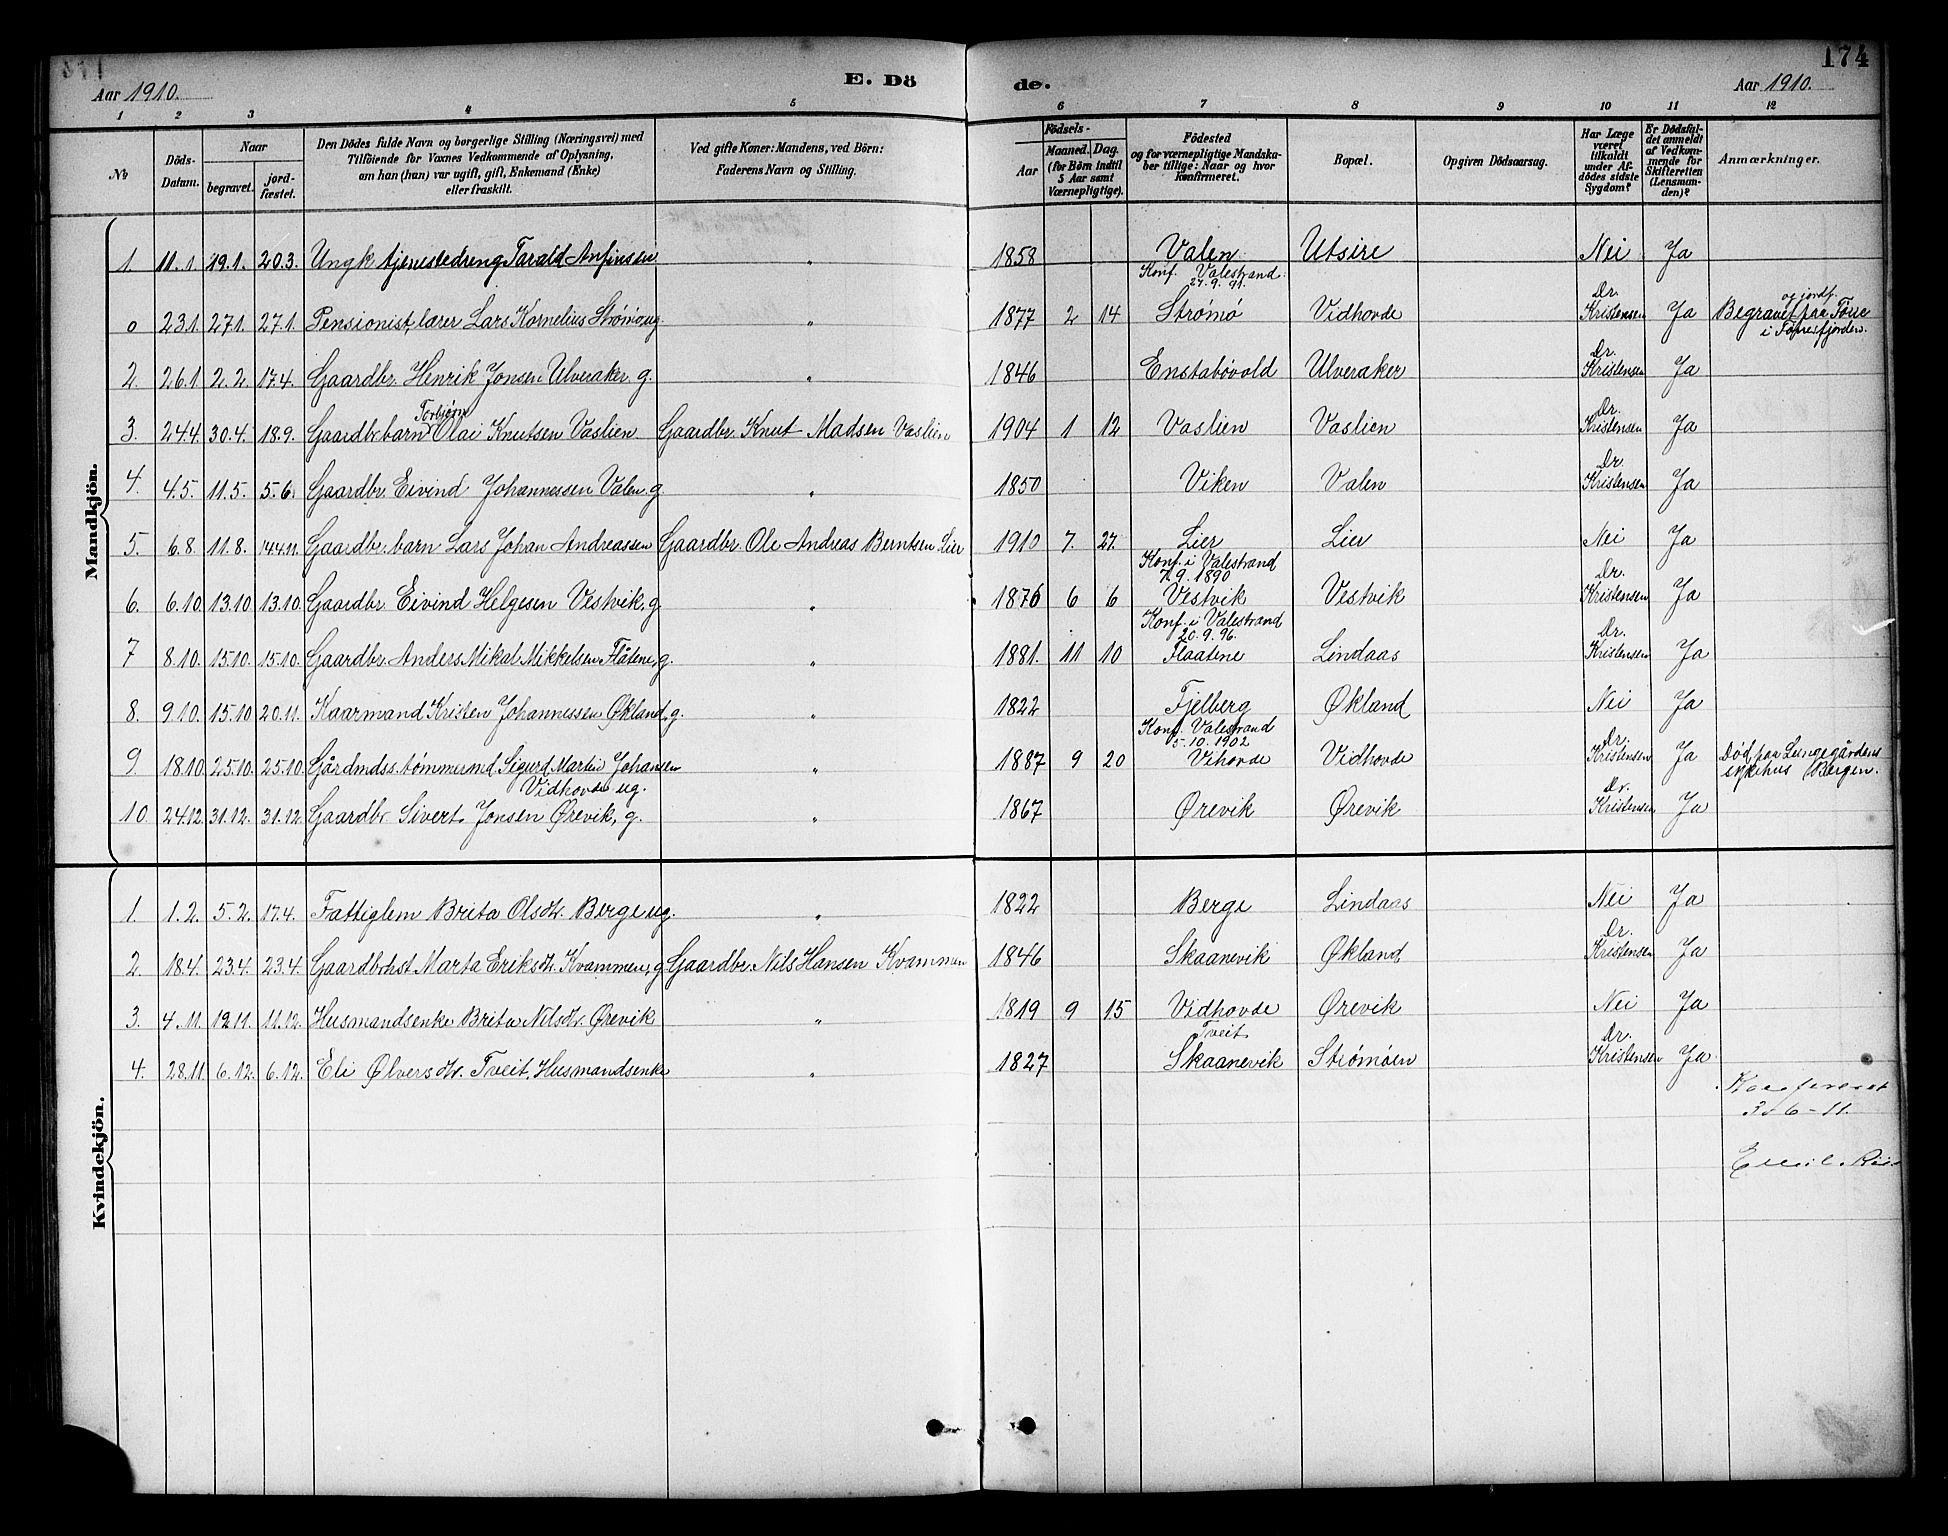 174
Aar 1910.
E. Dö
de.
Aar 1910.
1 2 3 4 5 6 7 8 9 10 11 12
No
Döds-Datum.
Naar
begravet.
jord-fæstet.
Den Dödes fulde Navn og borgerlige Stilling (Næringsvei) med
Tilföiende for Voxnes Vedkommende af Oplysning,
om han (hun) var ugift, gift, Enkemand (Enke)
eller fraskilt.
Ved gifte Koner: Mandens, ved Börn:
Faderens Navn og Stilling.
Födsels-
Aar
Maaned. Dag.
(for Börn indtil
5 Aar samt
Værnepligtige).
Födested
og for værnepligtige Mandska-
ber tillige: Naar og hvor
konfirmeret.
Bopæl.
Opgiven Dödsaarsag.
Har Læge
været
tilkaldt
under Af-
dödes sidste
Sygdom?
Er Dödsfal-
det anmeldt
af Vedkom-
mende for
Skifteretten
(Lensman-
den)?
Anmærkninger.
Mandkjön.
1. 11.1 19.1. 20.3. Ungk tjenestedreng Tarald Anfinsen " 1858 Valen Utsire Nei Ja
Konf. Valestrand
27.9.91.
0 23.1 27.1. 27.1. Pensionist, lærer Lars Kornelius Strömö ug. " 1877 2 14 Strømø Vidhovde Dr. Kristensen Ja Begravet og jordf. paa
2. 26.1 2.2 17.4. Gaardbr. Henrik Jonsen Ulveraker g. " 1846 Enstabövold Ulveraker Dr. Kristensen Ja
3. 24.4. 30.4. 18.9. Gaardbr. barn Torbjørn Olai Knutsen Vaslien Gaardbr. Knut Madsen Vaslien 1904 1 12 Vaslien Vaslien Dr. Kristensen Ja
4. 4.5. 11.5. 5.6. Gaardbr. Eivind Johannessen Valen g. " 1850 Viken Valen Dr. Kristensen Ja
5. 6.8. 11.8. Gaardbr. barn Lars Johan Andreassen Gaardbr. Ole Andreas Berntsen Lier 1910 7. 27. Lier Lier Nei Ja
Konf. i Valestrand
1890
6. 6.10 13.10 13.10. Gaardbr. Eivind Helgesen Vestvik, g. " 1876 6 6 Vestvik Vestvik Dr. Kristensen Ja
Konf. i Valestrand
20.9.96.
7 8.10. 15.10. 15.10. Gaardbr. Anders Mikal Mikkelsen Flåtene, g. " 1881. 11 10 Flaatene Lindaas Dr. Kristensen Ja
8. 9.10. 15.10 20.11. Kaarmand Kristen Johannessen Økland, g. " 1822 Fjelberg Økland Nei Ja
Konf. Valestrand
5.10.1902
9. 18.10 25.10. 25.10. Gårdmds. tømmermd Sigurd Martin Johansen
Vidhovde ug. " 1887 9 20 Vihovde Vidhovde Dr. Kristensen Ja Død paa Lungegårdens
sykehus Bergen.
10. 24.12. 31.12. 31.12. Gaardbr Sivert Jonsen Ørevik, g. " 1867 Ørevik Ørevik Dr. Kristensen Ja
Kvindekjön.
1. 1.2. 5.2. 17.4. Fattiglem Brita Olsdtr. Berge ug. " 1822 Berge Lindaas Nei Ja
2. 18.4. 23.4. 23.4. Gaardbrhst Marta Eriksdtr. Kvammen, g Gaardbr. Nils Hansen Kvammen 1846 Skaanevik Økland Dr. Kristensen Ja
3. 4.11. 12.11. 11.12. Husmandsenke Brita Nilsdtr. Ørevik " 1819 9 15 Vidhovde Ørevik Nei Ja
4. 28.11. 6.12. 6.12. Eli Ølversdtr. Tveit, Husmandsenke " 1827 Tveit
Skaanevik Strømøen Dr. Kristensen Ja
Konfereret
6-11.